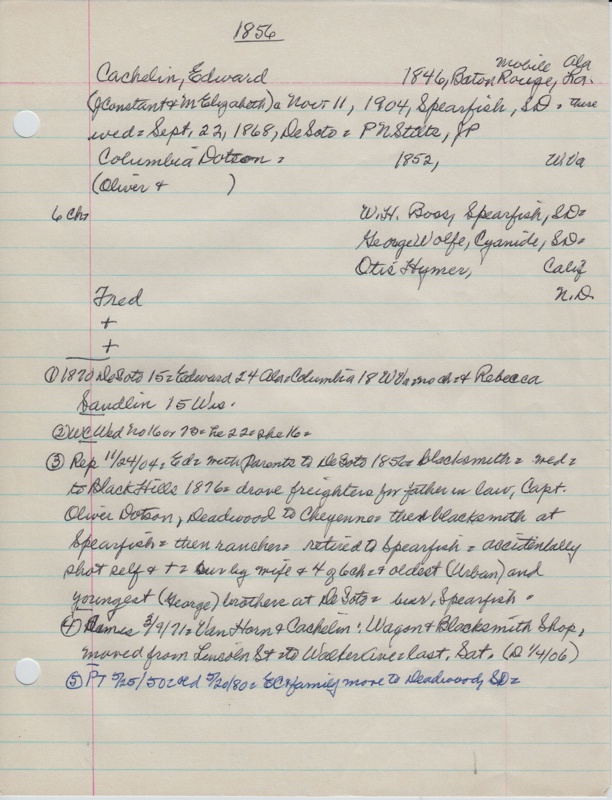 1856
mobile Ala
Cachelin, Edward 1846, Baton Rouge, La.
(J Constant & M Elizabeth) a Nov 11, 1904, Spearfish, SD = there
wed = Sept. 22, 1868, DeSoto = P N Stats, JP
Columbia Dotson = 1852, W Va
(Oliver & )
6 chs W.H. Boss, Spearfish, SD =
George Wolfe, Cyanide, SD =
Otis Hymer, Calif
Fred N.D.
+
+
① 1870 DeSoto 15 = Edward 24 Ala = Columbia 18 W Va no ch = & Rebecca
Sandlin 15 Wis.
② WC Wed no 16 or 70 = he 22 = she 16 =
③ Rep 11/24/04 = Ed = with parents to DeSoto 1856 = blacksmith = wed =
to Black Hills 1876 = drove freighters for father in law, Capt.
Oliver Dotson, Deadwood to Cheyenne = then blacksmith at
Spearfish = then rancher = retired to Spearfish = accidentally
shot self & + = sur by wife & 4 of 6 ch = & oldest (Urban) and
youngest (George) brothers at DeSoto = bur, Spearfish =
④ 3/9/71 = Van Horn & Cachelin: Wagon & Blacksmith Shop,
moved from Lincoln St = to Walker Ave = last. Sat. (D 1/4/06)
⑤ PT 5/25/50 = old 5/20/80 = EC & family move to Deadwood, SD =